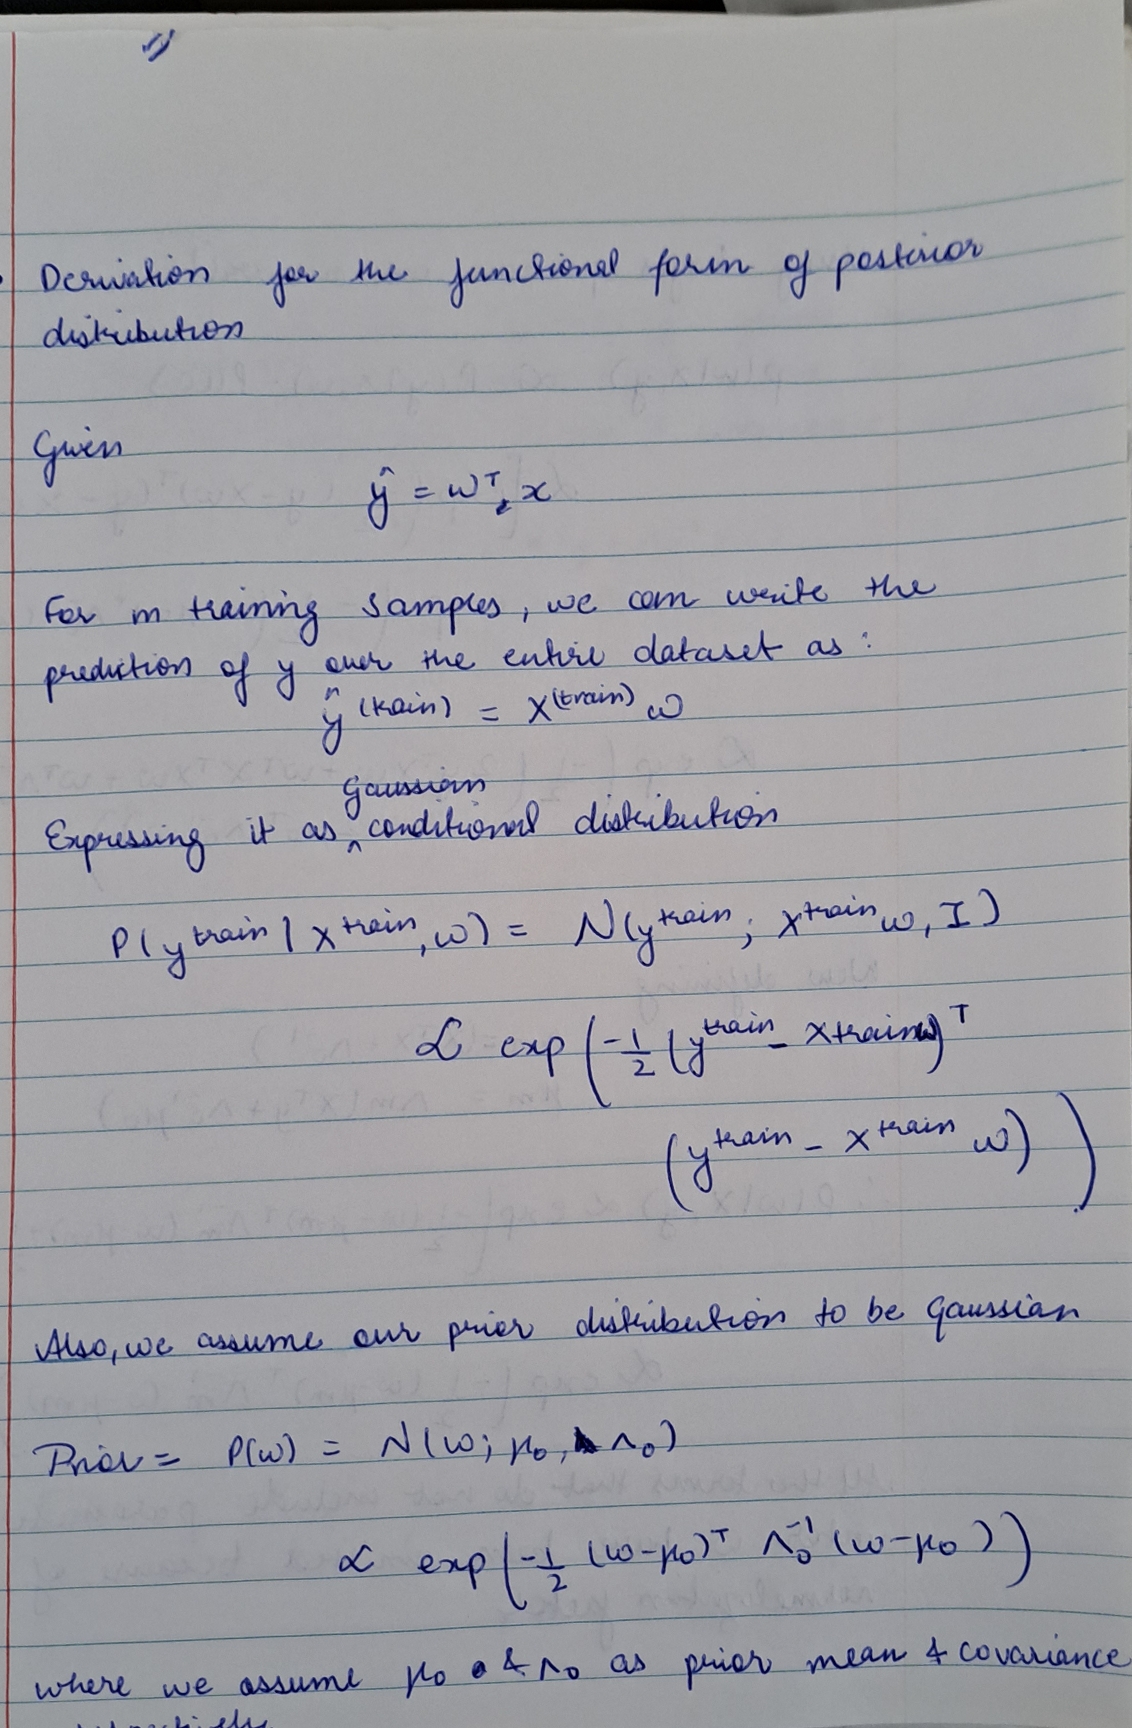 Derivation for the functional form of posterior
distribution
Given
ŷ = ωᵀ x
For m training samples, we can write the
prediction of y over the entire dataset as :
ŷ^(train) = X^(train) ω
Gaussian
Expressing it as ^ conditional distribution
P(y^train | X^train, ω) = N(y^train ; X^train ω, I)
∝ exp(-1/2 (y^train - X^train ω)^T
(y^train - X^train ω))
Also, we assume our prior distribution to be Gaussian
Prior = P(ω) = N(ω; μ₀, Λ₀)
∝ exp(-1/2 (ω-μ₀)ᵀ Λ₀⁻¹ (ω-μ₀))
where we assume μ₀ & Λ₀ as prior mean & covariance